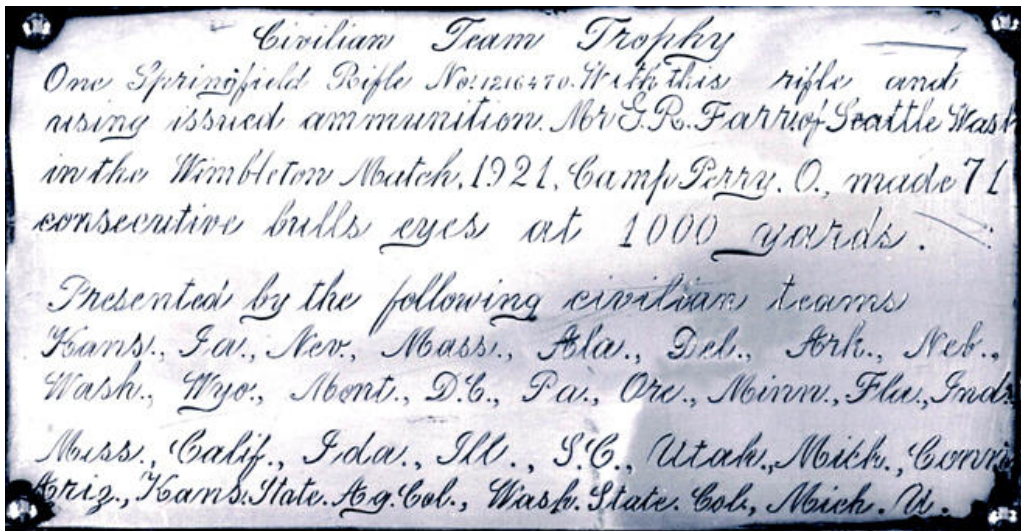 Civilian Team Trophy
One Springfield Rifle No. 1216470. With this rifle and
using issued ammunition. Mr G.R. Farr of Seattle Wash
in the Wimbleton Match, 1921, Camp Perry, O., made 71
consecutive bulls eyes at 1000 yards.
Presented by the following civilian teams
Kans., Ia., Nev., Mass., Ala., Del., Ark., Neb.,
Wash., Wyo., Mont., D.C., Pa., Ore., Minn., Fla., Ind.,
Miss., Calif., Ida., Ill., S.C., Utah., Mich., Conn.,
Ariz., Kans. State. Ag. Col., Wash. State. Col., Mich. U.